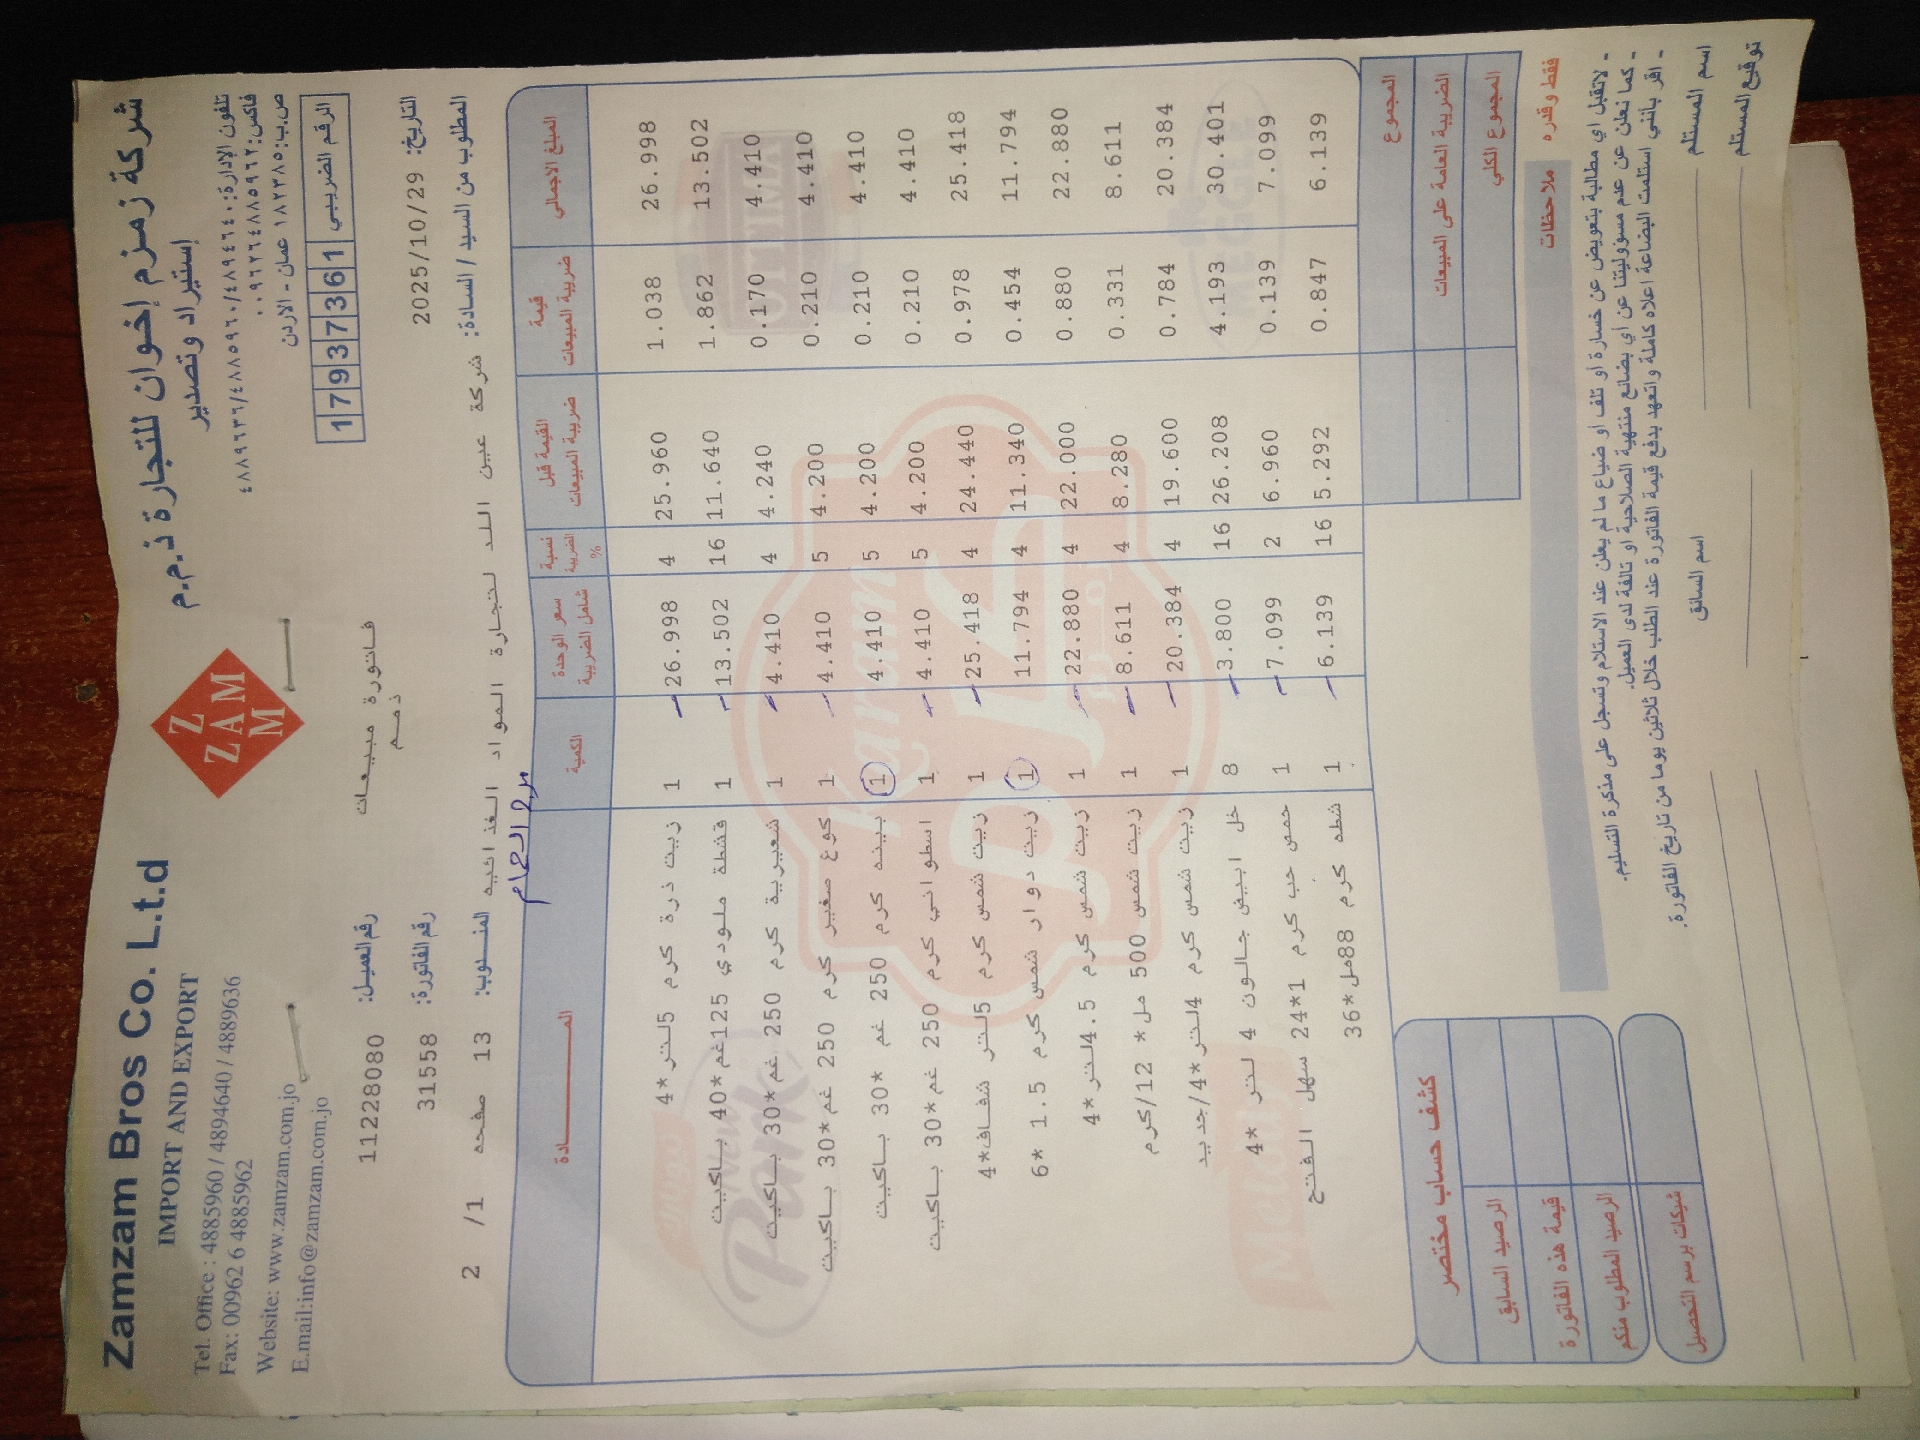 Zamzam Bros Co. L.t.d
IMPORT AND EXPORT
Tel. Office : 4885960 / 4894640 / 4889636
Fax: 00962 6 4885962
Website: www.zamzam.com.jo
E.mail:info@zamzam.com.jo
Z
ZAM
M
شركة زمزم إخوان للتجارة ذ.م.م
إستيراد وتصدير
تلفون الإدارة: ٤٨٨٩٦٣٦/٤٨٨٥٩٦٠/٤٨٩٤٦٤٠
فاكس: ٠٠٩٦٢٦٤٨٨٥٩٦٢
ص.ب: ١٨٢٣٨٥ عمان - الاردن
الرقم الضريبي 17937361
فاتورة مبيعات
ذمم
رقم العميل: 11228080
رقم الفاتورة: 31558
التاريخ: 2025/10/29
المطلوب من السيد / السادة: شركة عين اللد لتجارة المواد الغذائيه
المندوب: 13 صفحه 1/ 2
مرج الحمام
المادة الكمية سعر الوحدة شامل الضريبة نسبة الضريبة % القيمة قبل ضريبة المبيعات قيمة ضريبة المبيعات المبلغ الاجمالي
زيت ذرة كرم 5لتر*4 1 26.998 4 25.960 1.038 26.998
قشطة ملودي 125غم*40 باكيت 1 13.502 16 11.640 1.862 13.502
شعيرية كرم 250 غم*30 باكيت 1 4.410 4 4.240 0.170 4.410
كوع صغير كرم 250 غم*30 باكيت 1 4.410 5 4.200 0.210 4.410
بينه كرم 250 غم *30 باكيت 1 4.410 5 4.200 0.210 4.410
اسطواني كرم 250 غم*30 باكيت 1 4.410 5 4.200 0.210 4.410
زيت شمس كرم 5لتر شفاف*4 1 25.418 4 24.440 0.978 25.418
زيت دوار شمس كرم 1.5 *6 1 11.794 4 11.340 0.454 11.794
زيت شمس كرم 4.5لتر*4 1 22.880 4 22.000 0.880 22.880
زيت شمس 500 مل* 12/كرم 1 8.611 4 8.280 0.331 8.611
زيت شمس كرم 4لتر*4/جديد 1 20.384 4 19.600 0.784 20.384
خل ابيض جالون 4 لتر *4 8 3.800 16 26.208 4.193 30.401
حمص حب كرم 1*24 سهل الفتح 1 7.099 2 6.960 0.139 7.099
شطه كرم 88مل*36 1 6.139 16 5.292 0.847 6.139
المجموع
الضريبة العامة على المبيعات
المجموع الكلي
كشف حساب مختصر
الرصيد السابق
قيمة هذه الفاتورة
الرصيد المطلوب منكم
شيكات برسم التحصيل
فقط وقدره
ملاحظات
- لاتقبل أي مطالبة بتعويض عن خسارة أو تلف أو ضياع ما لم يعلن عند الاستلام وتسجل على مذكرة التسليم.
- كما نعلن عن عدم مسؤوليتنا عن أي بضائع منتهية الصلاحية او تالفة لدى العميل.
- اقر بأنني استلمت البضاعة اعلاه كاملة واتعهد بدفع قيمة الفاتورة عند الطلب خلال ثلاثين يوما من تاريخ الفاتورة.
اسم المستلم
اسم السائق
توقيع المستلم